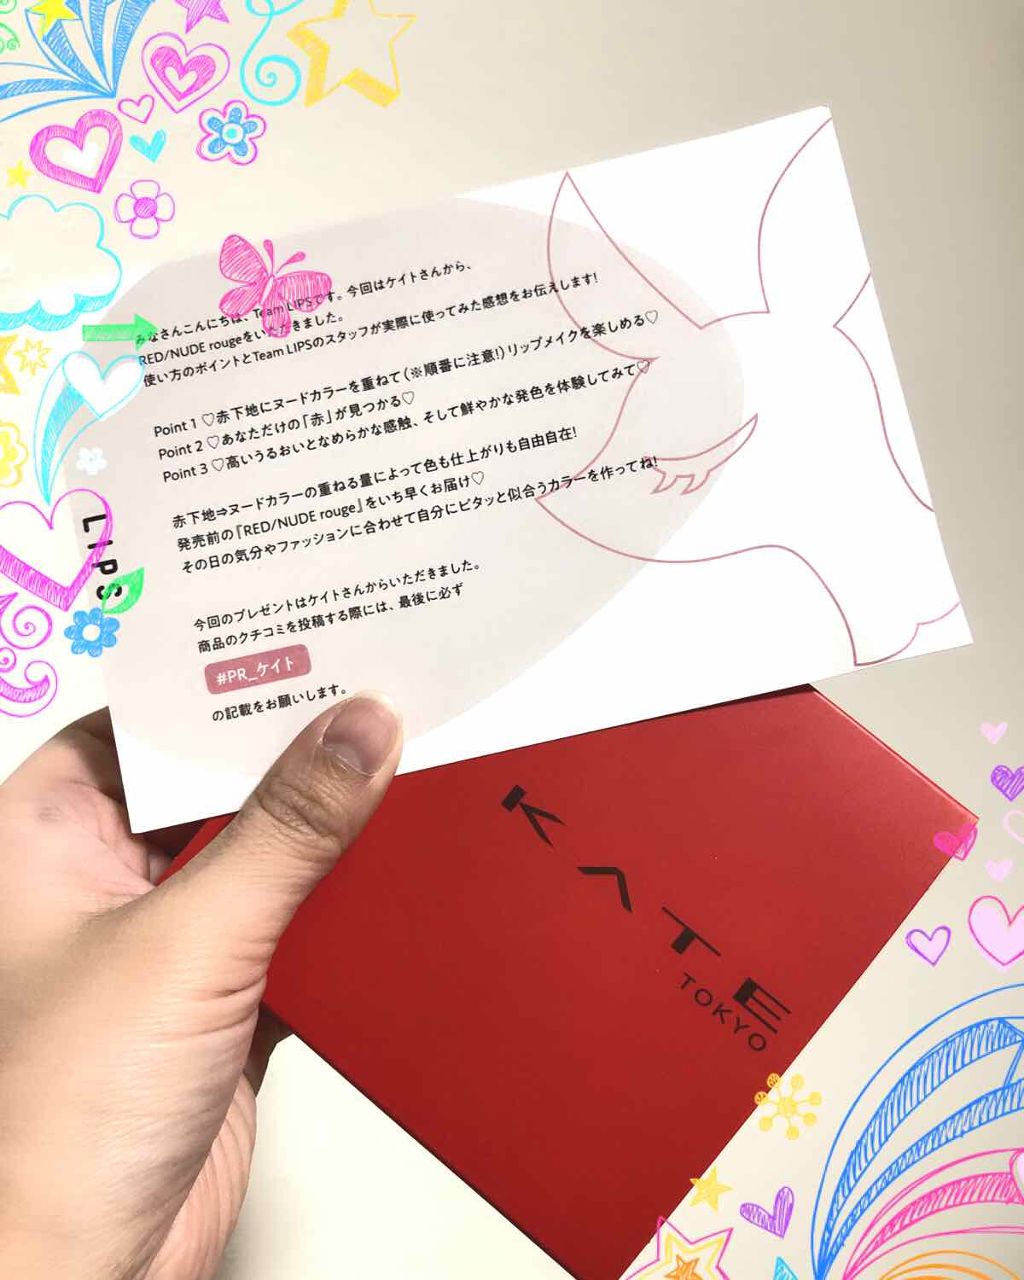 みなさんこんにちは、Team LIPSです。今回はケイトさんから、
RED/NUDE rougeをいただきました。
使い方のポイントとTeam LIPSのスタッフが実際に使ってみた感想をお伝えします!
Point 1 ♡赤下地にヌードカラーを重ねて(※順番に注意!)リップメイクを楽しめる♡
Point 2 ♡あなただけの「赤」が見つかる♡
Point 3 ♡高いうるおいとなめらかな感触、そして鮮やかな発色を体験してみて♡
赤下地⇒ヌードカラーの重ねる量によって色も仕上がりも自由自在!
発売前の『RED/NUDE rouge』をいち早くお届け♡
その日の気分やファッションに合わせて自分にピタッと似合うカラーを作ってね!
今回のプレゼントはケイトさんからいただきました。
商品のクチコミを投稿する際には、最後に必ず
#PR_ケイト
の記載をお願いします。
LIPS
KATE
TOKYO